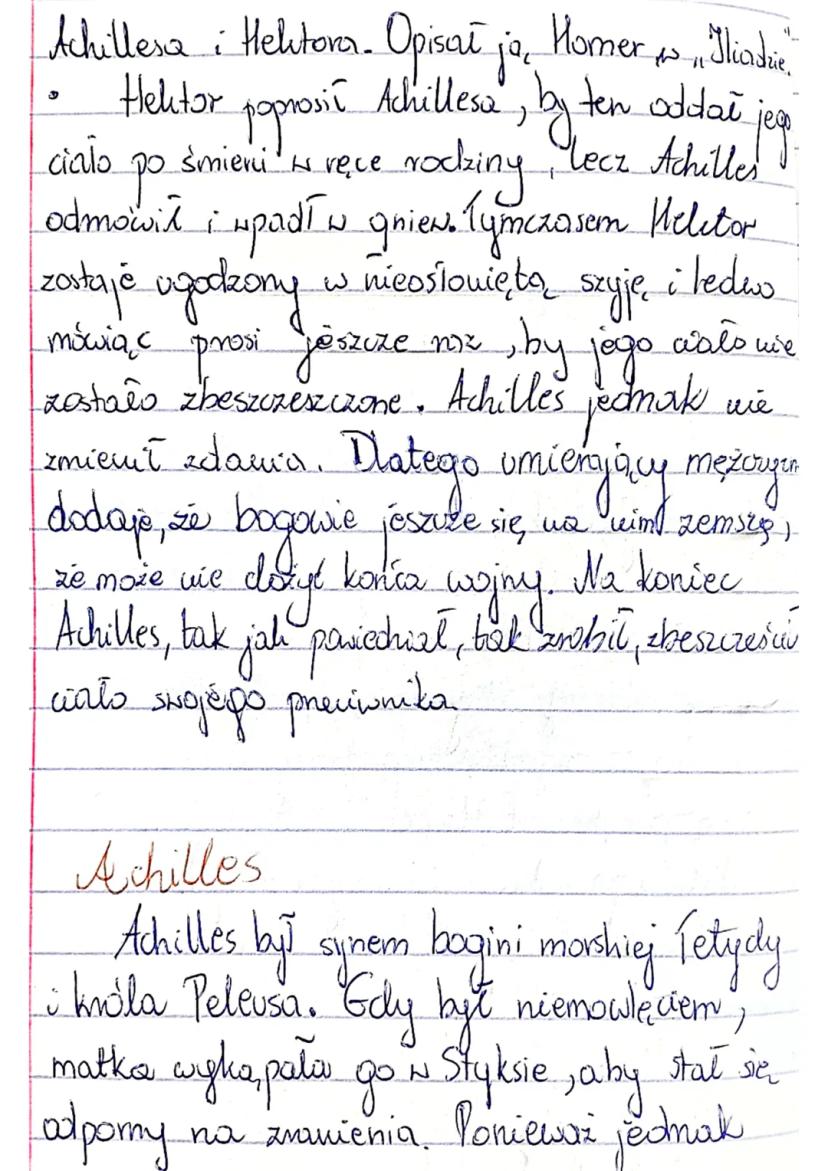 Achillesa i Hektora. Opisał ją Homer w „Iliadzie."
• Hektor poprosił Achillesa, by ten oddał jego
ciało po śmierci w ręce rodziny, lecz Achilles
odmówił i wpadł w gniew. Tymczasem Hektor
zostaje ugodzony w nieosłoniętą szyję i ledwo
mówiąc prosi jeszcze raz, by jego ciało nie
zostało zbeszczeszczone. Achilles jednak nie
zmienił zdania. Dlatego umierający mężczyzn
dodaje, że bogowie jeszcze się na nim zemszę,
że może nie dożyć końca wojny. Na koniec
Achilles, tak jak powiedział, tak zrobił, zbeszcześcił
ciało swojego przeciwnika
Achilles
Achilles był synem bogini morskiej Tetydy
i króla Peleusa. Gdy był niemowlęciem,
matka wykąpała go w Styksie, aby stał się
odporny na zranienia. Ponieważ jednak